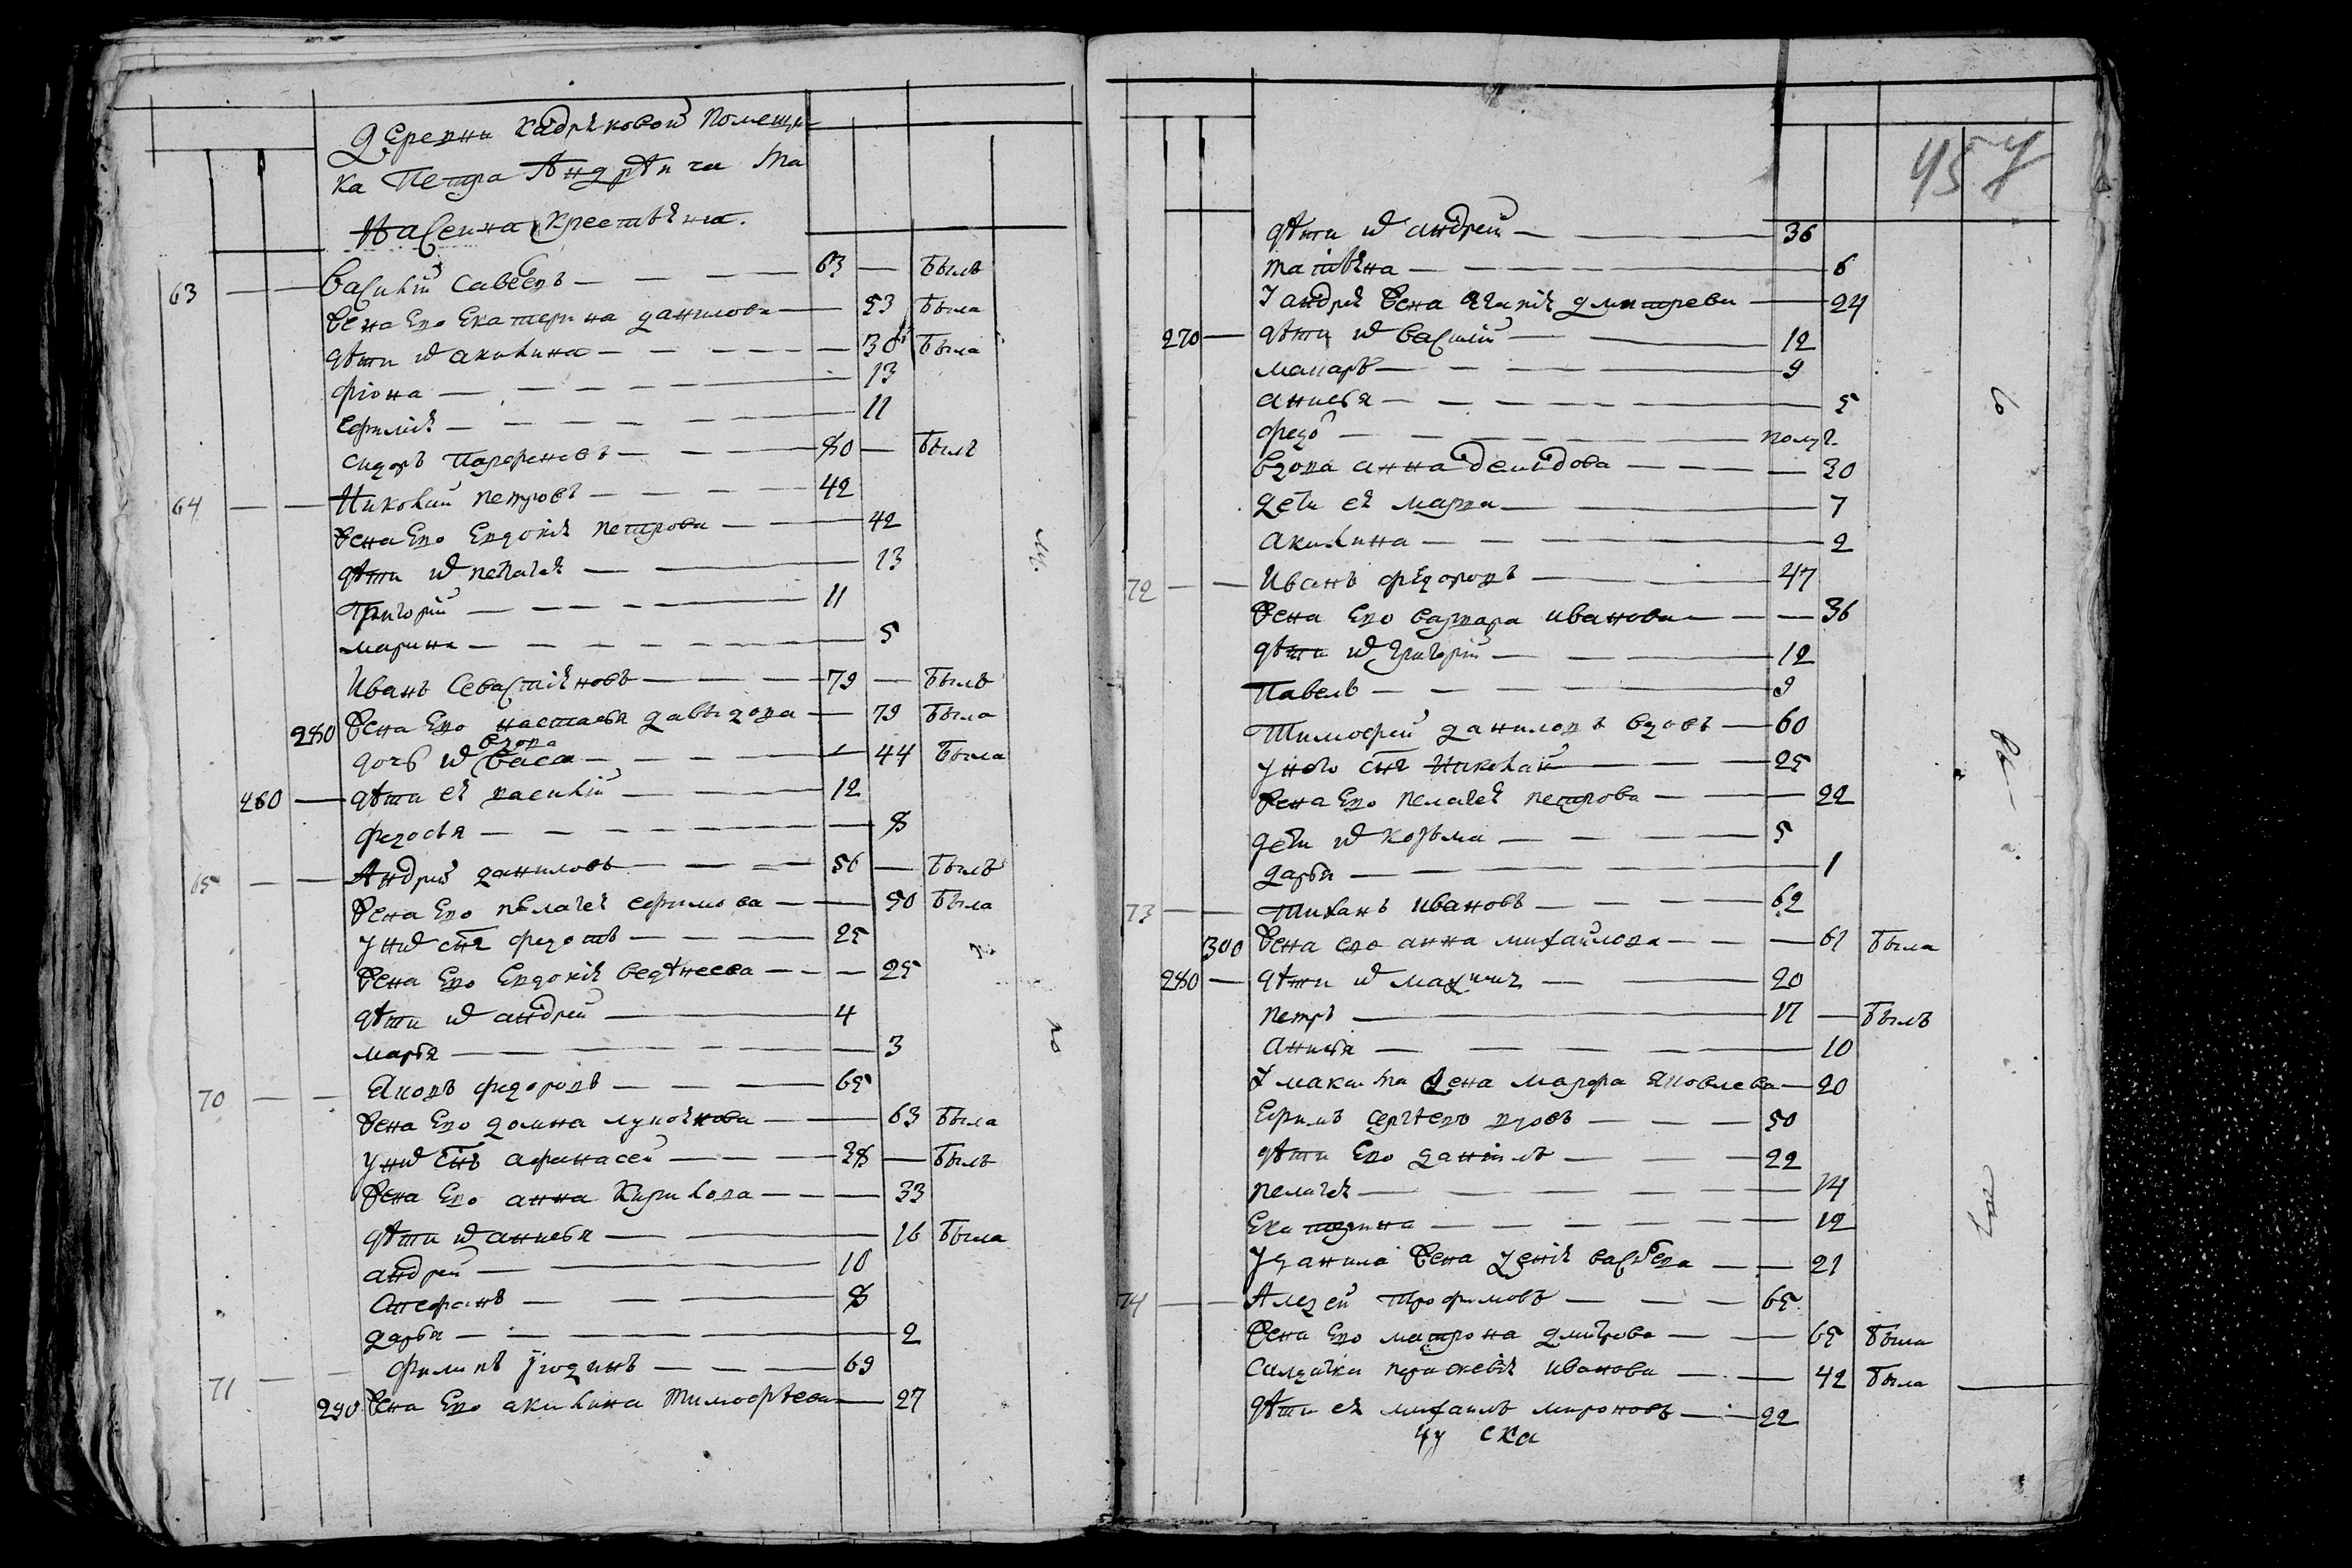 Деревни Кадряковой помещи
ка Петра Андреича Та
насеина крестьяна
63 Василий Савеевъ 63 былъ
Жена ево Екатерина Данилова 53 была
дѣти их Акилина 30 была
Фiона 13
Ефимiя 11
Сидоръ Парфеновъ 80 былъ
64 Николай Петровъ 42
Жена ево Евдокiя Петрова 42
дѣти их Пелагея 13
Григорiй 11
Марина 5
Иванъ Севастiяновъ 79 былъ
280 Жена ево Настасья Давыдова 79 была
вдова
дочь их Васа 44 была
260 дѣти ея Василiй 12
Федосья 8
65 Андрей Даниловъ 56 былъ
Жена ево Пелагея Ефимова 50 была
у них снъ Федотъ 25
Жена ево Евдокiя 25
дѣти их Андрей 4
Марья 3
70 Яковъ Федоровъ 65
Жена ево Домна 63 была
у них снъ Афанасей 38 былъ
Жена ево Анна Кирилова 33
дѣти их Анисья 16 была
Андрей 10
Стефанъ 8
Дарья 2
71 Филипъ Юдинъ 69
290 Жена ево Акилина Тимофѣева 27
457
дѣти их Андрей 36
Татьяна 6
У Андрея жена Дмитрева 24
270 дѣти их Василiй 12
Макаръ 9
Анисья 5
Федо полуг.
вдова Анна Демидова 30
дети ея Марва 7
Акилина 2
72 Иванъ Федоровъ 47
Жена ево Варвара Иванова 36
дѣти их Григорiй 12
Павелъ 9
Тимофей Даниловъ вдовъ 60
у него снъ Николай 25
Жена ево Пелагея Петрова 22
дети их Козьма 5
Дарья 1
73 Тиханъ Ивановъ 62
300 Жена ево Анна Михайлова 61 была
280 дѣти их Максимъ 20
Петръ 17 былъ
Анисья 10
У Максима жена Марфа Яковлева 20
Ефимъ Сергѣевъ вдовъ 50
дѣти ево Данiилъ 22
Пелагея 14
Екатерина 12
У Данила жена Ксенiя Васильева 21
74 Алексей Трофимовъ 65
Жена ево Матрона Дмитрова 65 была
Салдатка Парасковiя Иванова 42 была
дѣти ея Михаилъ Мироновъ 22
ска